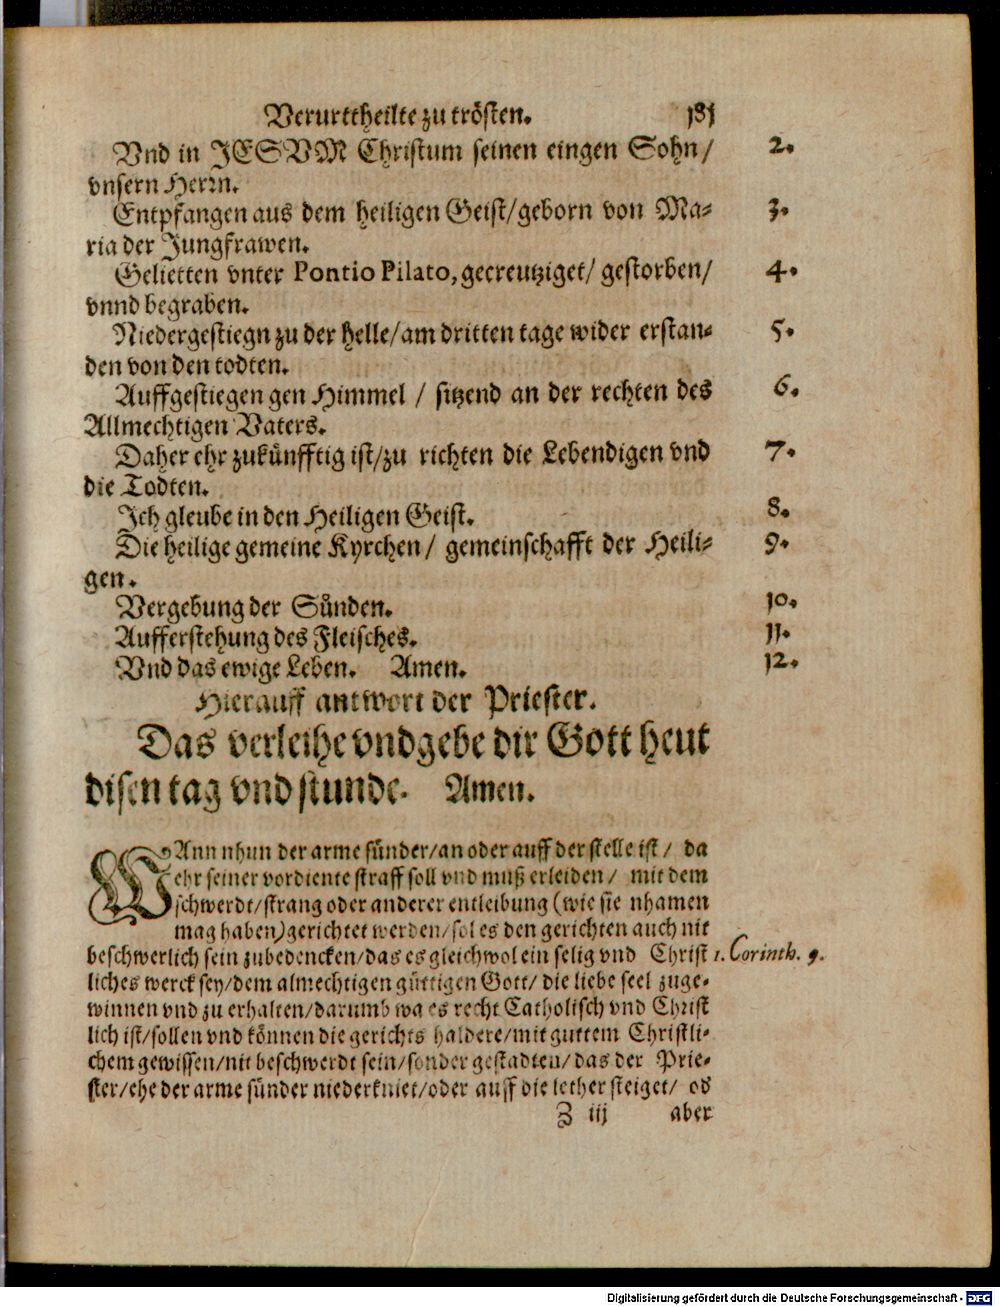 Verurttheilte zu trösten. 181
Vnd in JESVM Christum seinen eingen Sohn/ 2.
vnsern Herrn.
Entpfangen aus dem heiligen Geist/geborn von Ma- 3.
ria der Jungfrawen.
Gelietten vnter Pontio Pilato, gecreutziget/ gestorben/ 4.
vnnd begraben.
Niedergestiegn zu der helle/am dritten tage wider erstan- 5.
den von den todten.
Auffgestiegen gen Himmel / sitzend an der rechten des 6.
Allmechtigen Vaters.
Daher ehr zukünfftig ist/zu richten die Lebendigen vnd 7.
die Todten.
Ich gleube in den Heiligen Geist. 8.
Die heilige gemeine Kyrchen/ gemeinschafft der Heili- 9.
gen.
Vergebung der Sünden. 10.
Aufferstehung des Fleisches. 11.
Vnd das ewige Leben. Amen. 12.
Hierauff antwort der Priester.
Das verleihe vnd gebe dir Gott heut
disen tag vnd stunde. Amen.
WAnn nhun der arme sünder/an oder auff der stelle ist/ da
ehr seiner vordiente straff soll vnd muß erleiden/ mit dem
schwerdt/strang oder anderer entleibung (wie sie nhamen
mag haben) gerichtet werden/sol es den gerichten auch nit
beschwerlich sein zubedencken/das es gleichwol ein selig vnd Christ 1. Corinth. 9.
liches werck sey/dem almechtigen güttigen Gott/ die liebe seel zuge-
winnen vnd zu erhalten/darumb wa es recht Catholisch vnd Christ
lich ist/sollen vnd können die gerichts haldere/mit guttem Christli-
chem gewissen/nit beschwerdt sein/sonder gestadten/das der Prie-
ster/ehe der arme sünder niederkniet/oder auff die lether steiget/ ob
Z iij aber
Digitalisierung gefördert durch die Deutsche Forschungsgemeinschaft - DFG